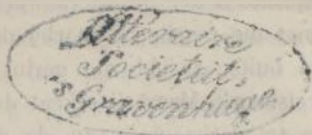 Litteraire
Societeit,
'sGravenhage.